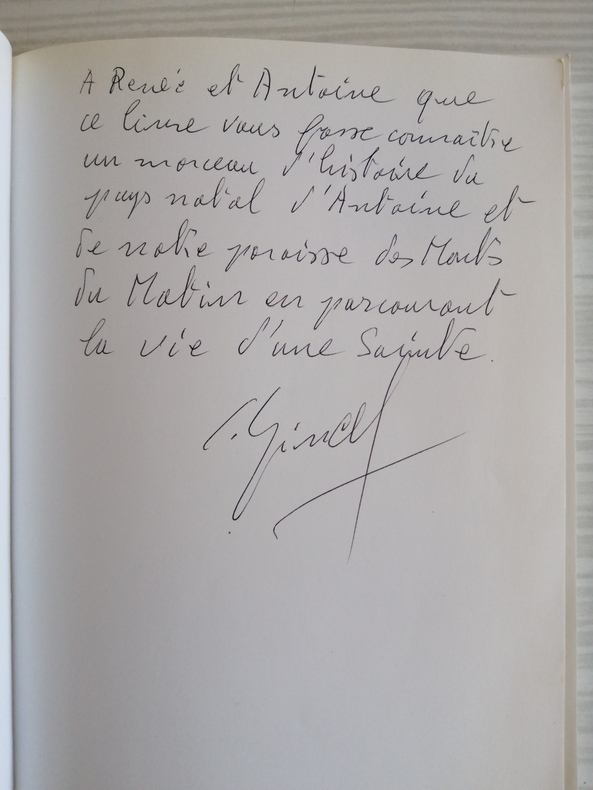 A Renée et Antoine que
ce livre vous fasse connaître
un morceau d'histoire du
pays natal d'Antoine et
de notre paroisse des Monts
du Matin en parcourant
la vie d'une Sainte.